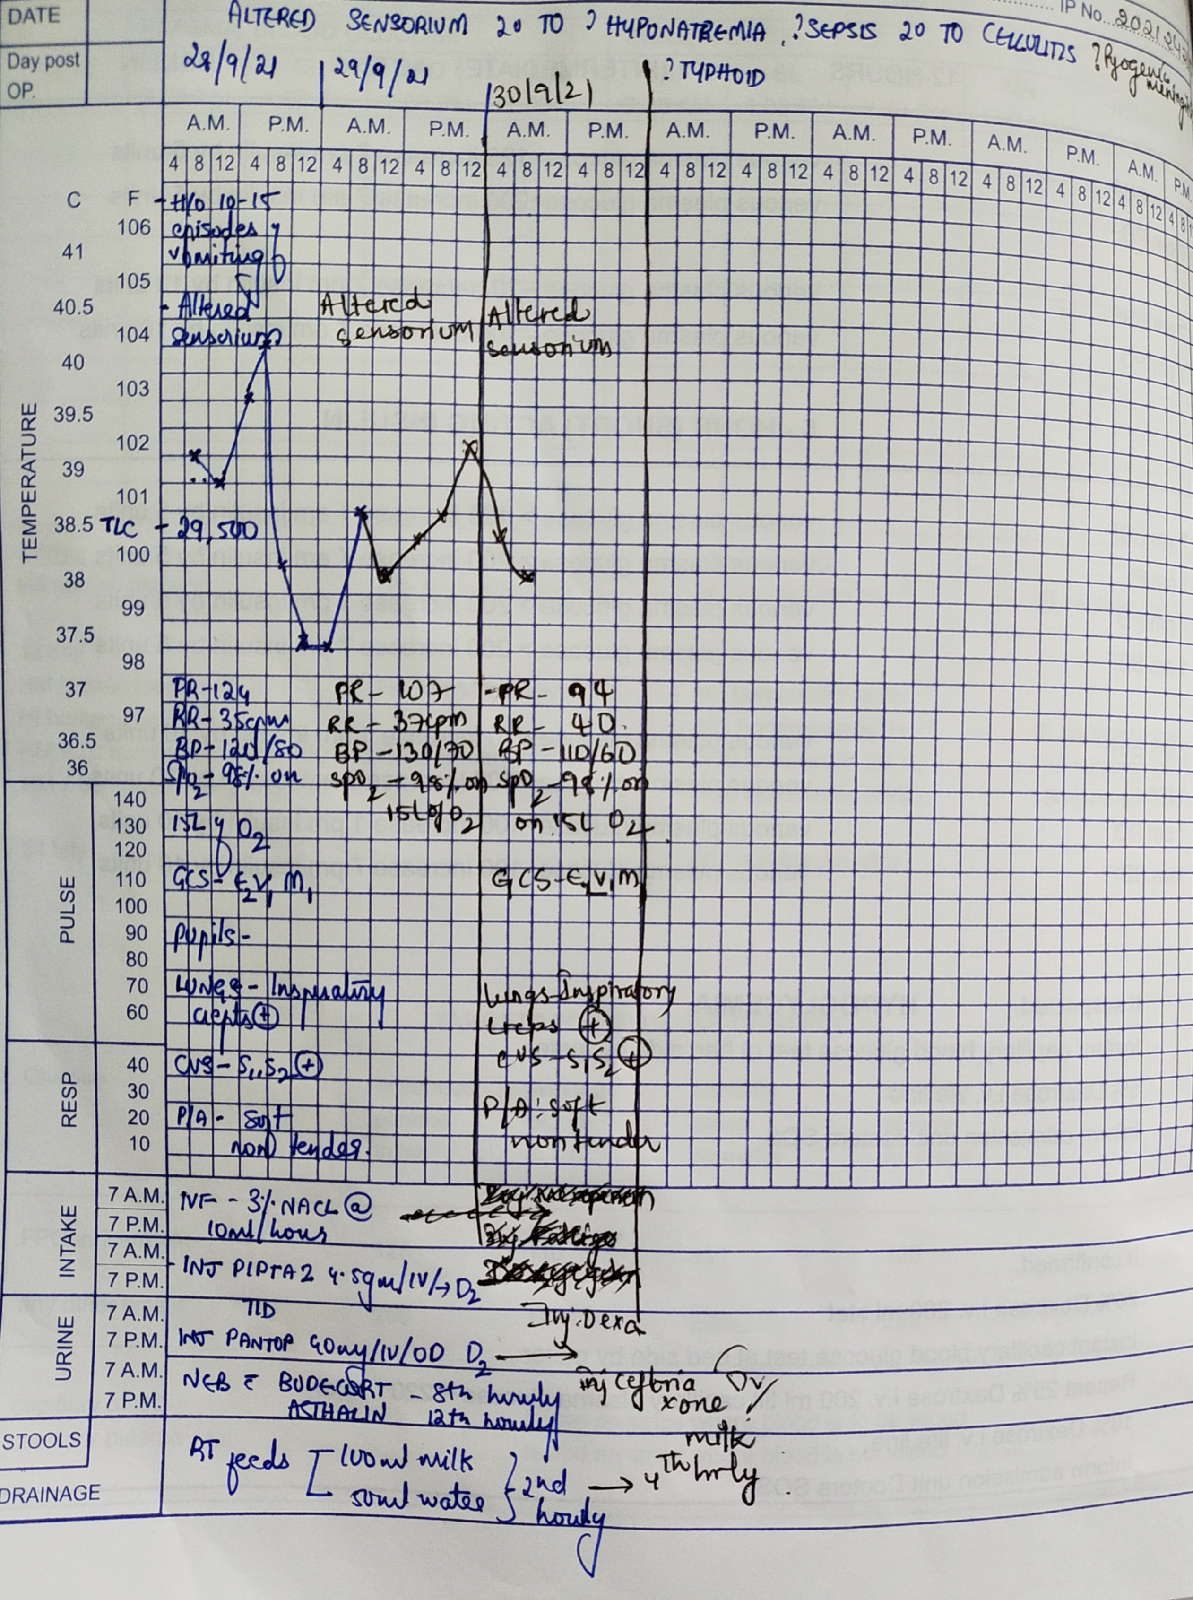 IP No. 202124
DATE
ALTERED SENSORIUM 20 TO ? HYPONATREMIA, ?SEPSIS 20 TO CELLULITIS ?Pyogenic meningi
Day post OP.
28/9/21 29/9/21 30/9/21 ? TYPHOID
A.M. P.M. A.M. P.M. A.M. P.M. A.M. P.M. A.M. P.M. A.M. P.M. A.M. P.M.
4 8 12 4 8 12 4 8 12 4 8 12 4 8 12 4 8 12 4 8 12 4 8 12 4 8 12 4 8 12 4 8 12 4 8 12 4 8 12 4 8
C F - H/O 10-15
106 episodes of
41 vomiting
105
40.5 - Altered Altered Altered
104 sensorium sensorium sensorium
40
103
39.5
102
TEMPERATURE
39
101
38.5 TLC - 29,500
100
38
99
37.5
98
37 PR-124 PR- 107 -PR- 94
97 RR-35cpm RR-37cpm RR- 40.
36.5 BP-120/80 BP-130/70 BP-110/60
36 SpO2-98% on SpO2-98% on SpO2-98% on
140 15L of O2 on 15L O2
130 15L of O2
120
110 GCS-E2V1M1 GCS-E2V1M1
PULSE
100
90 Pupils-
80
70 LUNGS- Inspiratory Lungs-Inspiratory
60 crepts + creps +
40 CVS-S1,S2 + CVS-S1S2 +
RESP
30
20 P/A- soft P/A: soft
10 non tender. non tender
INTAKE
7 A.M. IVF - 3% NACL @
7 P.M. 10ml/hours
7 A.M.
7 P.M. - INJ PIPTAZ 4.5gm/IV/→D2
URINE
7 A.M. TID Inj. Dexa
7 P.M. INJ PANTOP 40mg/IV/OD D2
7 A.M. NEB c BUDECORT - 8th hourly inj ceftria xone IV
7 P.M. ASTHALIN 12th hourly
STOOLS
milk
RT feeds 100ml milk 2nd → 4th hrly
DRAINAGE
50ml water hourly